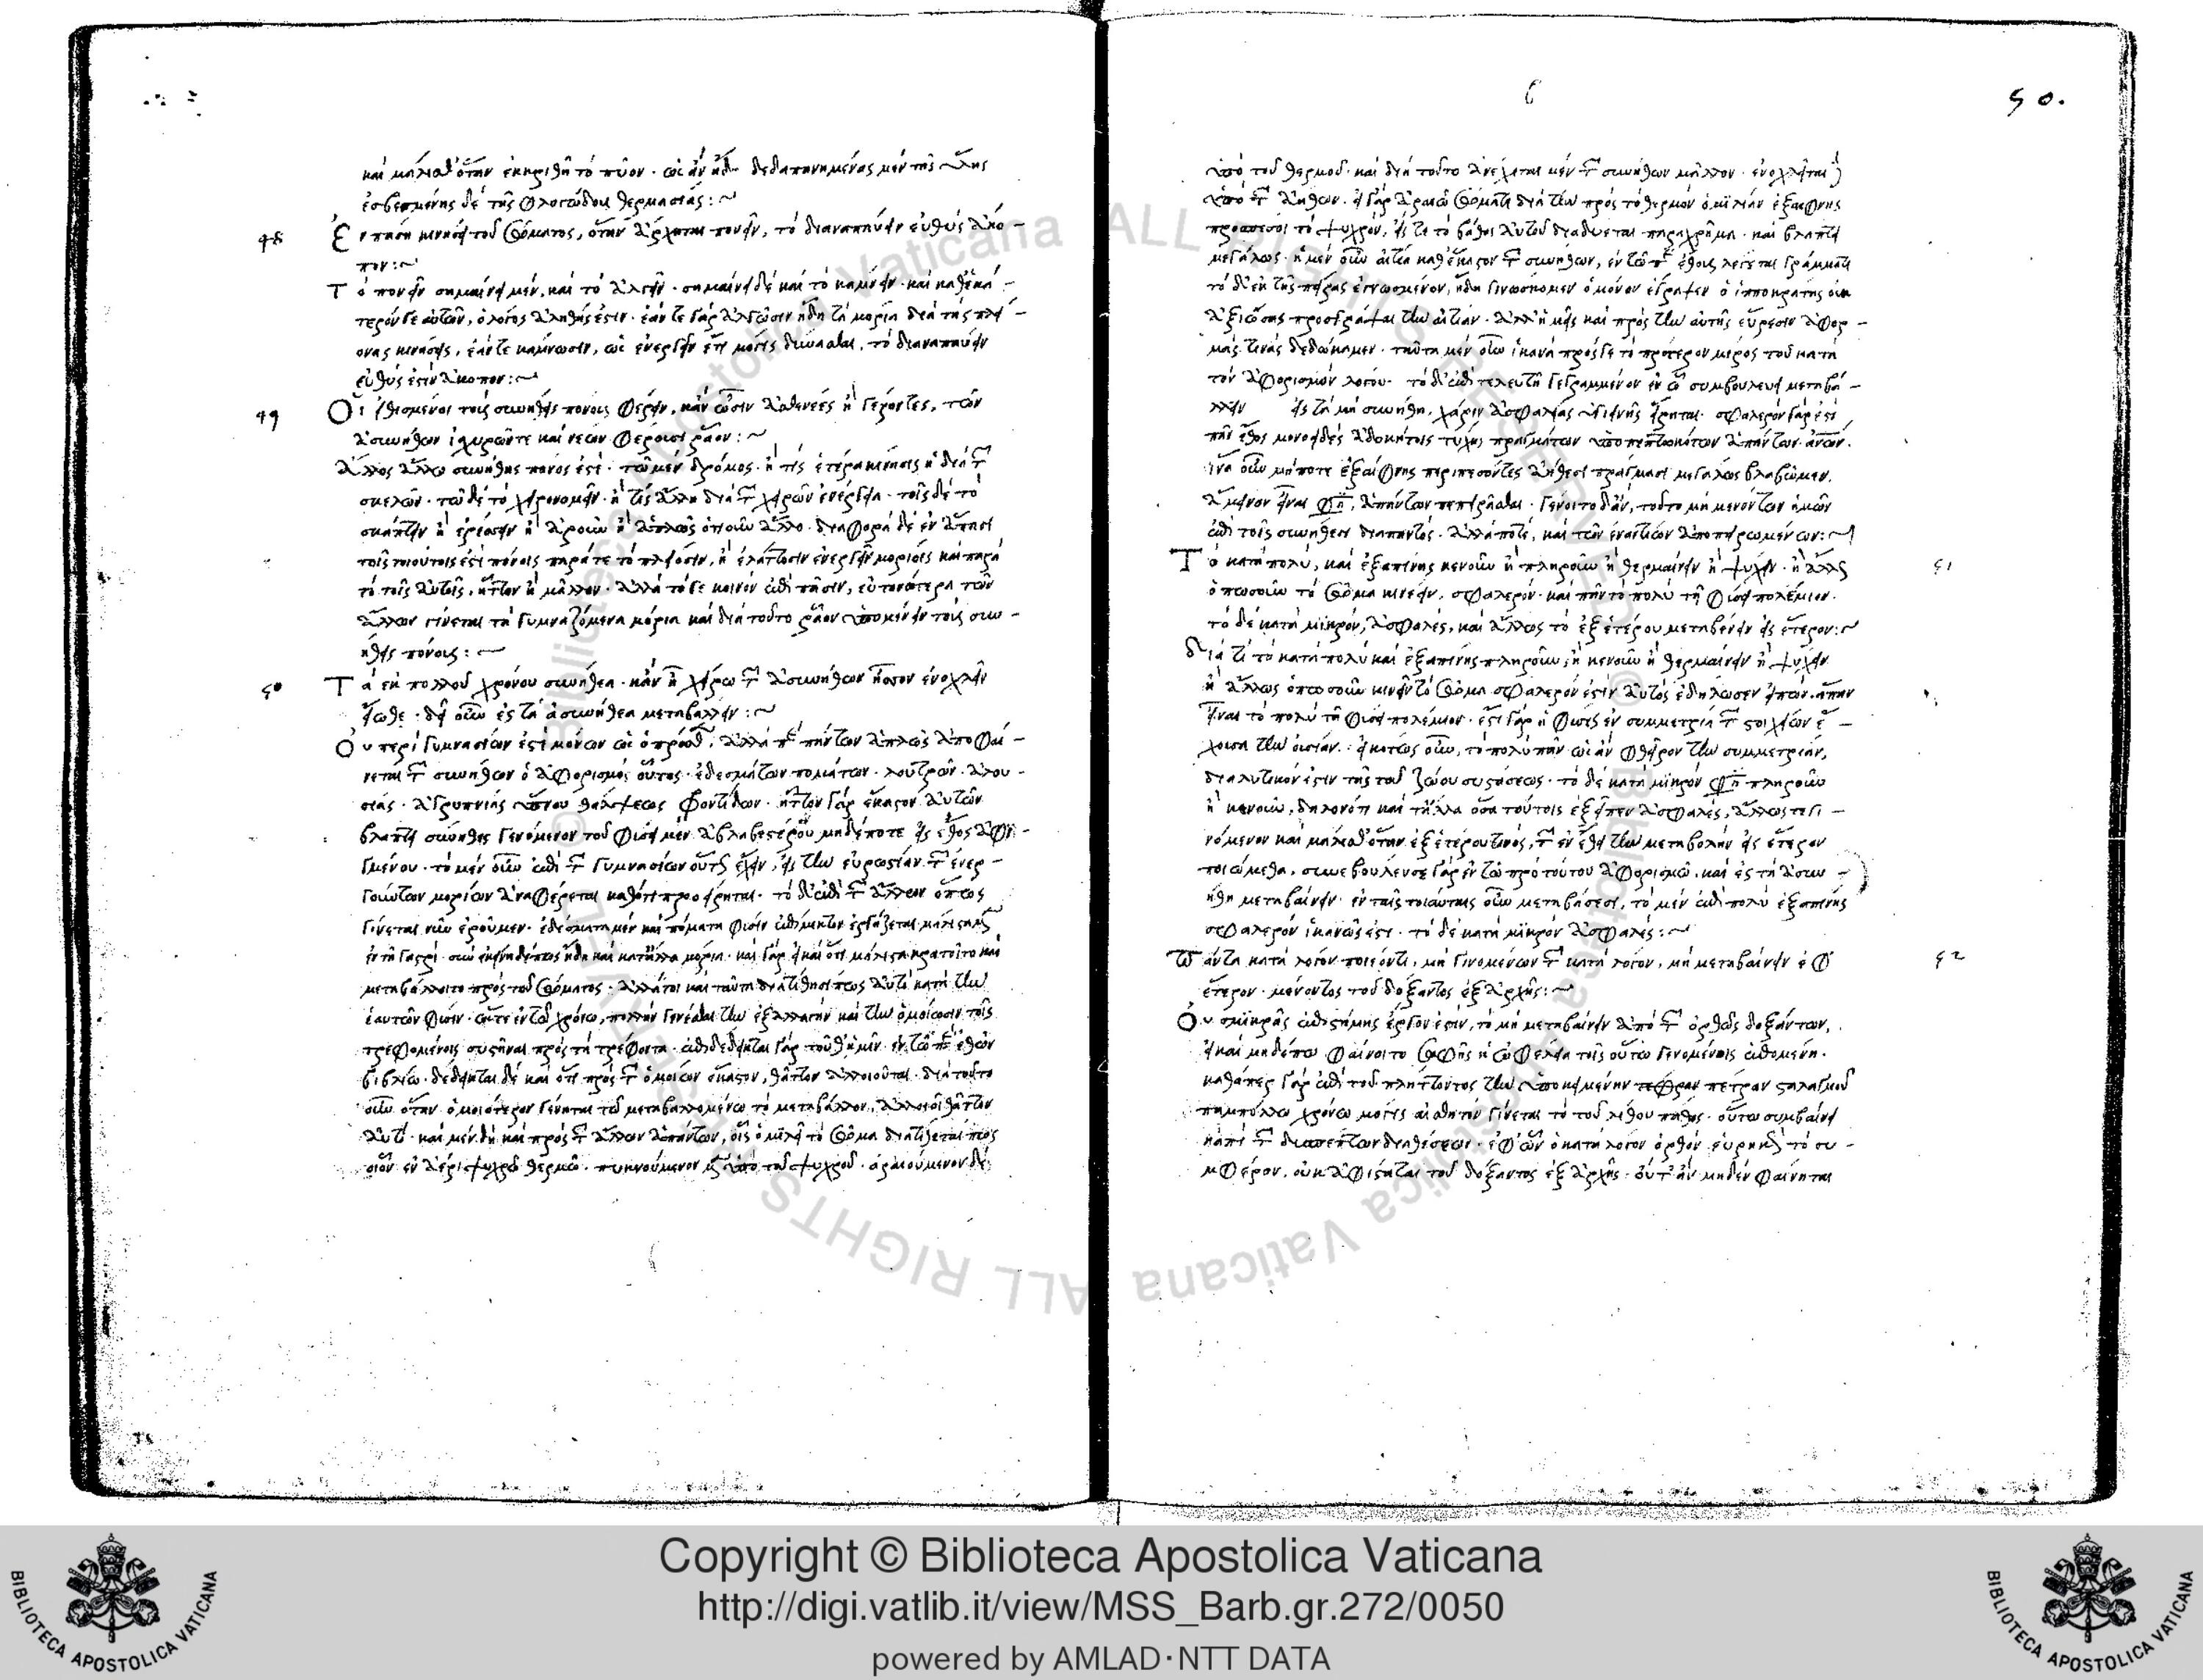 καὶ μάλισθ' ὅταν ἐκκριθῇ τὸ πῦον. ὡς ἂν ἤδη δεδαπανημένης μὲν τῆς ὕλης
ἐσβεσμένης δὲ τῆς φλογώδους θερμασίας:~
48
Ἐν πάσῃ κινήσει τοῦ σώματος, ὅταν ἄρχηται πονεῖν, τὸ διαναπαύειν εὐθὺς ἄκο-
πον:~
Τὸ πονεῖν σημαίνει μὲν, καὶ τὸ ἀλγεῖν. σημαίνει δὲ καὶ τὸ κάμνειν. καὶ καθ' ἑκά-
τερόν γε αὐτῶν, ὁ λόγος ἀληθής ἐστιν. ἐάν τε γὰρ ἀλγῶσιν ἤδη τὰ μόρια διὰ τὰς πλεί-
ονας κινήσεις, ἐάν τε κάμνωσιν, ὡς ἐνεργεῖν ἔτι μόγις δύνασθαι, τὸ διαναπαύειν
εὐθὺς ἐστὶν ἄκοπον:~
49
Οἱ εἰθισμένοι τοὺς συνήθεις πόνους φέρειν, κἂν ὦσιν ἀσθενέες ἢ γέροντες, τῶν
ἀσυνήθων ἰσχυρῶν τε καὶ νέων φέρουσι ῥᾷον:~
Ἄλλος ἄλλῳ συνήθης πόνος ἐστὶ. τῷ μὲν δρόμος. ἤ τις ἑτέρα κίνησις ἡ διὰ τῶν
σκελῶν. τῷ δὲ τὸ χειρονομεῖν. ἤ τις ἄλλη διὰ τῶν χειρῶν ἐνέργεια. τοῖς δὲ τὸ
σκάπτειν ἢ ἐρέσσειν ἢ ἀροῦν ἢ ἁπλῶς ὁτιοῦν ἄλλο. διαφορὰ δὲ ἐν ἅπασι
τοῖς τοιούτοις ἐστὶ πόνοις παρά τε τὸ πλείοσιν, ἢ ἐλάττοσιν ἐνεργεῖν μορίοις καὶ παρὰ
τὸ τοῖς αὐτοῖς, ἧττον ἢ μᾶλλον. ἀλλὰ τό γε κοινὸν ἐπὶ πᾶσιν, εὐτονώτερα τῶν
ἄλλων γίνεται τὰ γυμναζόμενα μόρια καὶ διὰ τοῦτο ῥᾷον ὑπομένειν τοῖς συν-
ήθεις πόνοις:~
50
Τὰ ἐκ πολλοῦ χρόνου συνήθεα. κἂν ᾖ χείρω τῶν ἀσυνήθων ἧσσον ἐνοχλεῖν
εἴωθε. δεῖ οὖν ἐς τὰ ἀσυνήθεα μεταβάλλειν:~
Οὐ περὶ γυμνασίων ἐστὶ μόνων ὡς ὁ πρόσθεν. ἀλλὰ περὶ πάντων ἁπλῶς ἀποφαί-
νεται τῶν συνήθων ὁ ἀφορισμὸς οὗτος. ἐδεσμάτων πομάτων. λουτρῶν. ἀλου-
σίας. ἀγρυπνίας ὕπνου θάλψεως φροντίδων. ἧττον γὰρ ἕκαστον αὐτῶν
βλάπτει σύνηθες γενόμενον τοῦ φύσει μὲν ἀβλαβεστέρου μηδέποτε εἰς ἔθος ἀφι-
γμένου. τὸ μὲν οὖν ἐπὶ τῶν γυμνασίων οὕτως ἔχειν, εἰς τὴν εὐρωστίαν τῶν ἐνερ-
γούντων μορίων ἀναφέρεται καθότι προείρηται. τὸ δ' ἐπὶ τῶν ἄλλων ὅπως
γίνεται νῦν ἐροῦμεν. ἐδέσματα μὲν καὶ πόματα
ἐν τῇ γαστρὶ.
μεταβάλλοιτο πρὸς τοῦ σώματος. ἀλλά τοι καὶ ταῦτα διατίθησί πως αὐτὸ κατὰ τὴν
ἑαυτῶν φύσιν. ὥστε ἐν τῷ χρόνῳ, πολλὴν γενέσθαι τὴν ἐξαλλαγὴν καὶ τὴν ὁμοίωσιν τοῖς
τρεφομένοις συστῆναι πρὸς τὰ τρέφοντα. ἐπιδέδεικται γὰρ τοῦθ' ἡμῖν ἐν τῷ περὶ ἐθῶν
βιβλίῳ. δέδεικται δὲ καὶ ὅτι πρὸς τῶν ὁμοίων ἕκαστον, θᾶττον ἀλλοιοῦται. διὰ τοῦτο
οὖν ὅταν ὁμοιότερον γένηται τῷ μεταβαλλομένῳ τὸ μεταβάλλον, ἀλλοιοῖ θᾶττον
αὐτό. καὶ μὲν δὴ καὶ πρὸς τῶν ἄλλων ἁπάντων, οἷς ὁμιλεῖ τὸ σῶμα διατίθεταί πως
οἷον ἐν ἀέρι ψυχρῷ θερμῷ. πυκνούμενον μὲν ὑπὸ τοῦ ψυχροῦ. ἀραιούμενον δὲ
50.
ὑπὸ τοῦ θερμοῦ. καὶ διὰ τοῦτο ἀνέχεται μὲν τῶν συνήθων μᾶλλον. ἐνοχλεῖται δὲ
ὑπὸ τῶν ἀήθων. εἰ γὰρ ἀραιῷ σώματι διὰ τὴν πρὸς τὸ θερμὸν ὁμιλίαν ἐξαίφνης
προσπέσοι τὸ ψυχρόν, εἴς τε τὸ βάθος αὐτοῦ διαδύεται παραχρῆμα. καὶ βλάπτει
μεγάλως. ἡ μὲν οὖν αἰτία καθ' ἕκαστον τῶν συνήθων, ἐν τῷ περὶ ἔθους λέγεται γράμματι
τὸ δ' ἐκ τῆς πείρας ἐγνωσμένον, ἤδη γινώσκομεν ὃ μόνον ἔγραψεν ὁ ἱπποκράτης οὐκ
ἀξιώσας προσγράψαι τὴν αἰτίαν. ἀλλ' ἡμεῖς καὶ πρὸς τὴν αὐτῆς εὕρεσιν ἀφορ-
μάς τινας δεδώκαμεν. ταῦτα μὲν οὖν ἱκανὰ πρός γε τὸ πρότερον μέρος τοῦ κατὰ
τὸν ἀφορισμὸν λόγου. τὸ δ' ἐπὶ τελευτῇ γεγραμμένον ἐν ᾧ συμβουλεύει μεταβά-
λλειν εἰς τὰ μὴ συνήθη, χάριν ἀσφαλείας ὑγιεινῆς εἴρηται. σφαλερὸν γάρ ἐστι
πᾶν ἔθος μονοειδὲς ἀδοκήτοις τύχης πραγμάτων ὑποπεπτωκότων ἁπάντων ἀνθρώπων.
ἵνα οὖν μήποτε ἐξαίφνης περιπεσόντες ἀήθεσι πράγμασι μεγάλως βλαβῶμεν.
ἄμεινον εἶναι φησὶ, ἁπάντων πεπειρᾶσθαι. γένοιτο δ' ἂν, τοῦτο μὴ μενόντων ἡμῶν
ἐπὶ τοῖς συνήθεσι διαπαντός. ἀλλά ποτε, καὶ τῶν ἐναντίων ἀποπειρωμένων:~
51
Τὸ κατὰ πολὺ, καὶ ἐξαπίνης κενοῦν ἢ πληροῦν ἢ θερμαίνειν ἢ ψύχειν. ἢ ἄλλως
ὁπωσοῦν τὸ σῶμα κινέειν, σφαλερόν. καὶ πᾶν τὸ πολὺ τῇ φύσει πολέμιον.
τὸ δὲ κατὰ μικρὸν, ἀσφαλές, καὶ ἄλλως τὸ ἐξ ἑτέρου μεταβαίνειν εἰς ἕτερον:~
Διὰ τί τὸ κατὰ πολὺ καὶ ἐξαπίνης πληροῦν, ἢ κενοῦν ἢ θερμαίνειν ἢ ψύχειν
ἢ ἄλλως ὁπωσοῦν κινεῖν τὸ σῶμα σφαλερόν ἐστιν αὐτὸς ἐδήλωσεν εἰπὼν. ἅπαν
εἶναι τὸ πολὺ τῇ φύσει πολέμιον. ἔστι γὰρ ἡ φύσις ἐν συμμετρίᾳ τῶν στοιχείων ἔ-
χουσα τὴν οὐσίαν. εἰκότως οὖν, τὸ πολὺ πᾶν ὡς ἂν φθεῖρον τὴν συμμετρίαν,
διαλυτικόν ἐστιν τῆς τοῦ ζῴου συστάσεως. τὸ δὲ κατὰ μικρόν φησι πληροῦν
ἢ κενοῦν, δηλονότι καὶ τἄλλα ὅσα τούτοις ἐξεῖπεν ἀσφαλές, ἄλλως τε γι-
νόμενον καὶ μάλισθ' ὅταν ἐξ ἑτέρου τινὸς, τῶν ἐν ἔθει τὴν μεταβολὴν εἰς ἕτερον
ποιώμεθα. συνεβούλευσε γὰρ ἐν τῷ πρὸ τούτου ἀφορισμῷ, καὶ ἐς τὰ ἀσυν-
ήθη μεταβαίνειν. ἐν ταῖς τοιαύταις οὖν μεταβάσεσι, τὸ μὲν ἐπὶ πολὺ ἐξαπίνης
σφαλερὸν ἱκανῶς ἐστὶ. τὸ δὲ κατὰ μικρὸν ἀσφαλές:~
52
Πάντα κατὰ λόγον ποιέοντι, μὴ γινομένων τῶν κατὰ λόγον, μὴ μεταβαίνειν ἐφ'
ἕτερον. μένοντος τοῦ δόξαντος ἐξ ἀρχῆς:~
Οὐ σμικρᾶς ἐπιστήμης ἔργον ἐστίν, τὸ μὴ μεταβαίνειν ἀπὸ τῶν ὀρθῶς δοξάντων,
εἰ καὶ μηδέπω φαίνοιτο σαφὴς ἡ ὠφέλεια τοῖς οὕτω γενομένοις ἑπομένη.
καθάπερ γὰρ ἐπὶ τοῦ πλήττοντος τὴν ὑποκειμένην πέτραν σταλαγμοῦ
παμπόλλῳ χρόνῳ μόγις αἰσθητὸν γίνεται τὸ τοῦ λίθου πάθος. οὕτω συμβαίνει
κἀπὶ τῶν δυσπέπτων διαθέσεων. ἐφ' ὧν ὁ κατὰ λόγον ὀρθὸν εὑρηκὼς τὸ συ-
μφέρον, οὐκ ἀφίσταται τοῦ δόξαντος ἐξ ἀρχῆς. οὔτ' ἂν μηδὲν φαίνηται
Copyright © Biblioteca Apostolica Vaticana
http://digi.vatlib.it/view/MSS_Barb.gr.272/0050
powered by AMLAD·NTT DATA
BIBLIOTECA APOSTOLICA VATICANA
BIBLIOTECA APOSTOLICA VATICANA